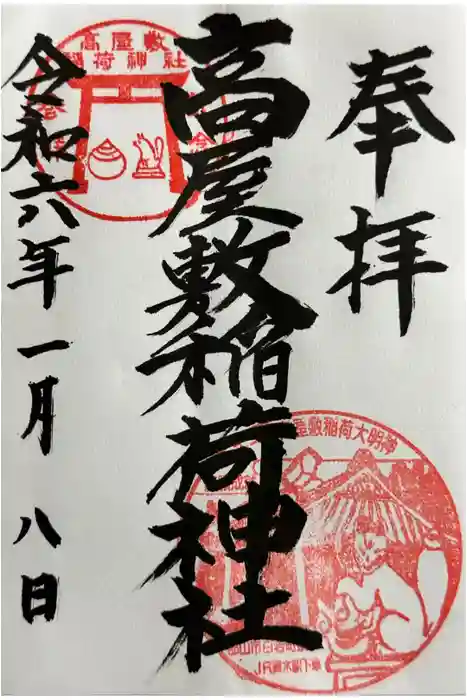 奉拝
高屋敷稲荷神社
令和六年一月八日
高屋敷
稲荷神社
屋敷稲荷大明神